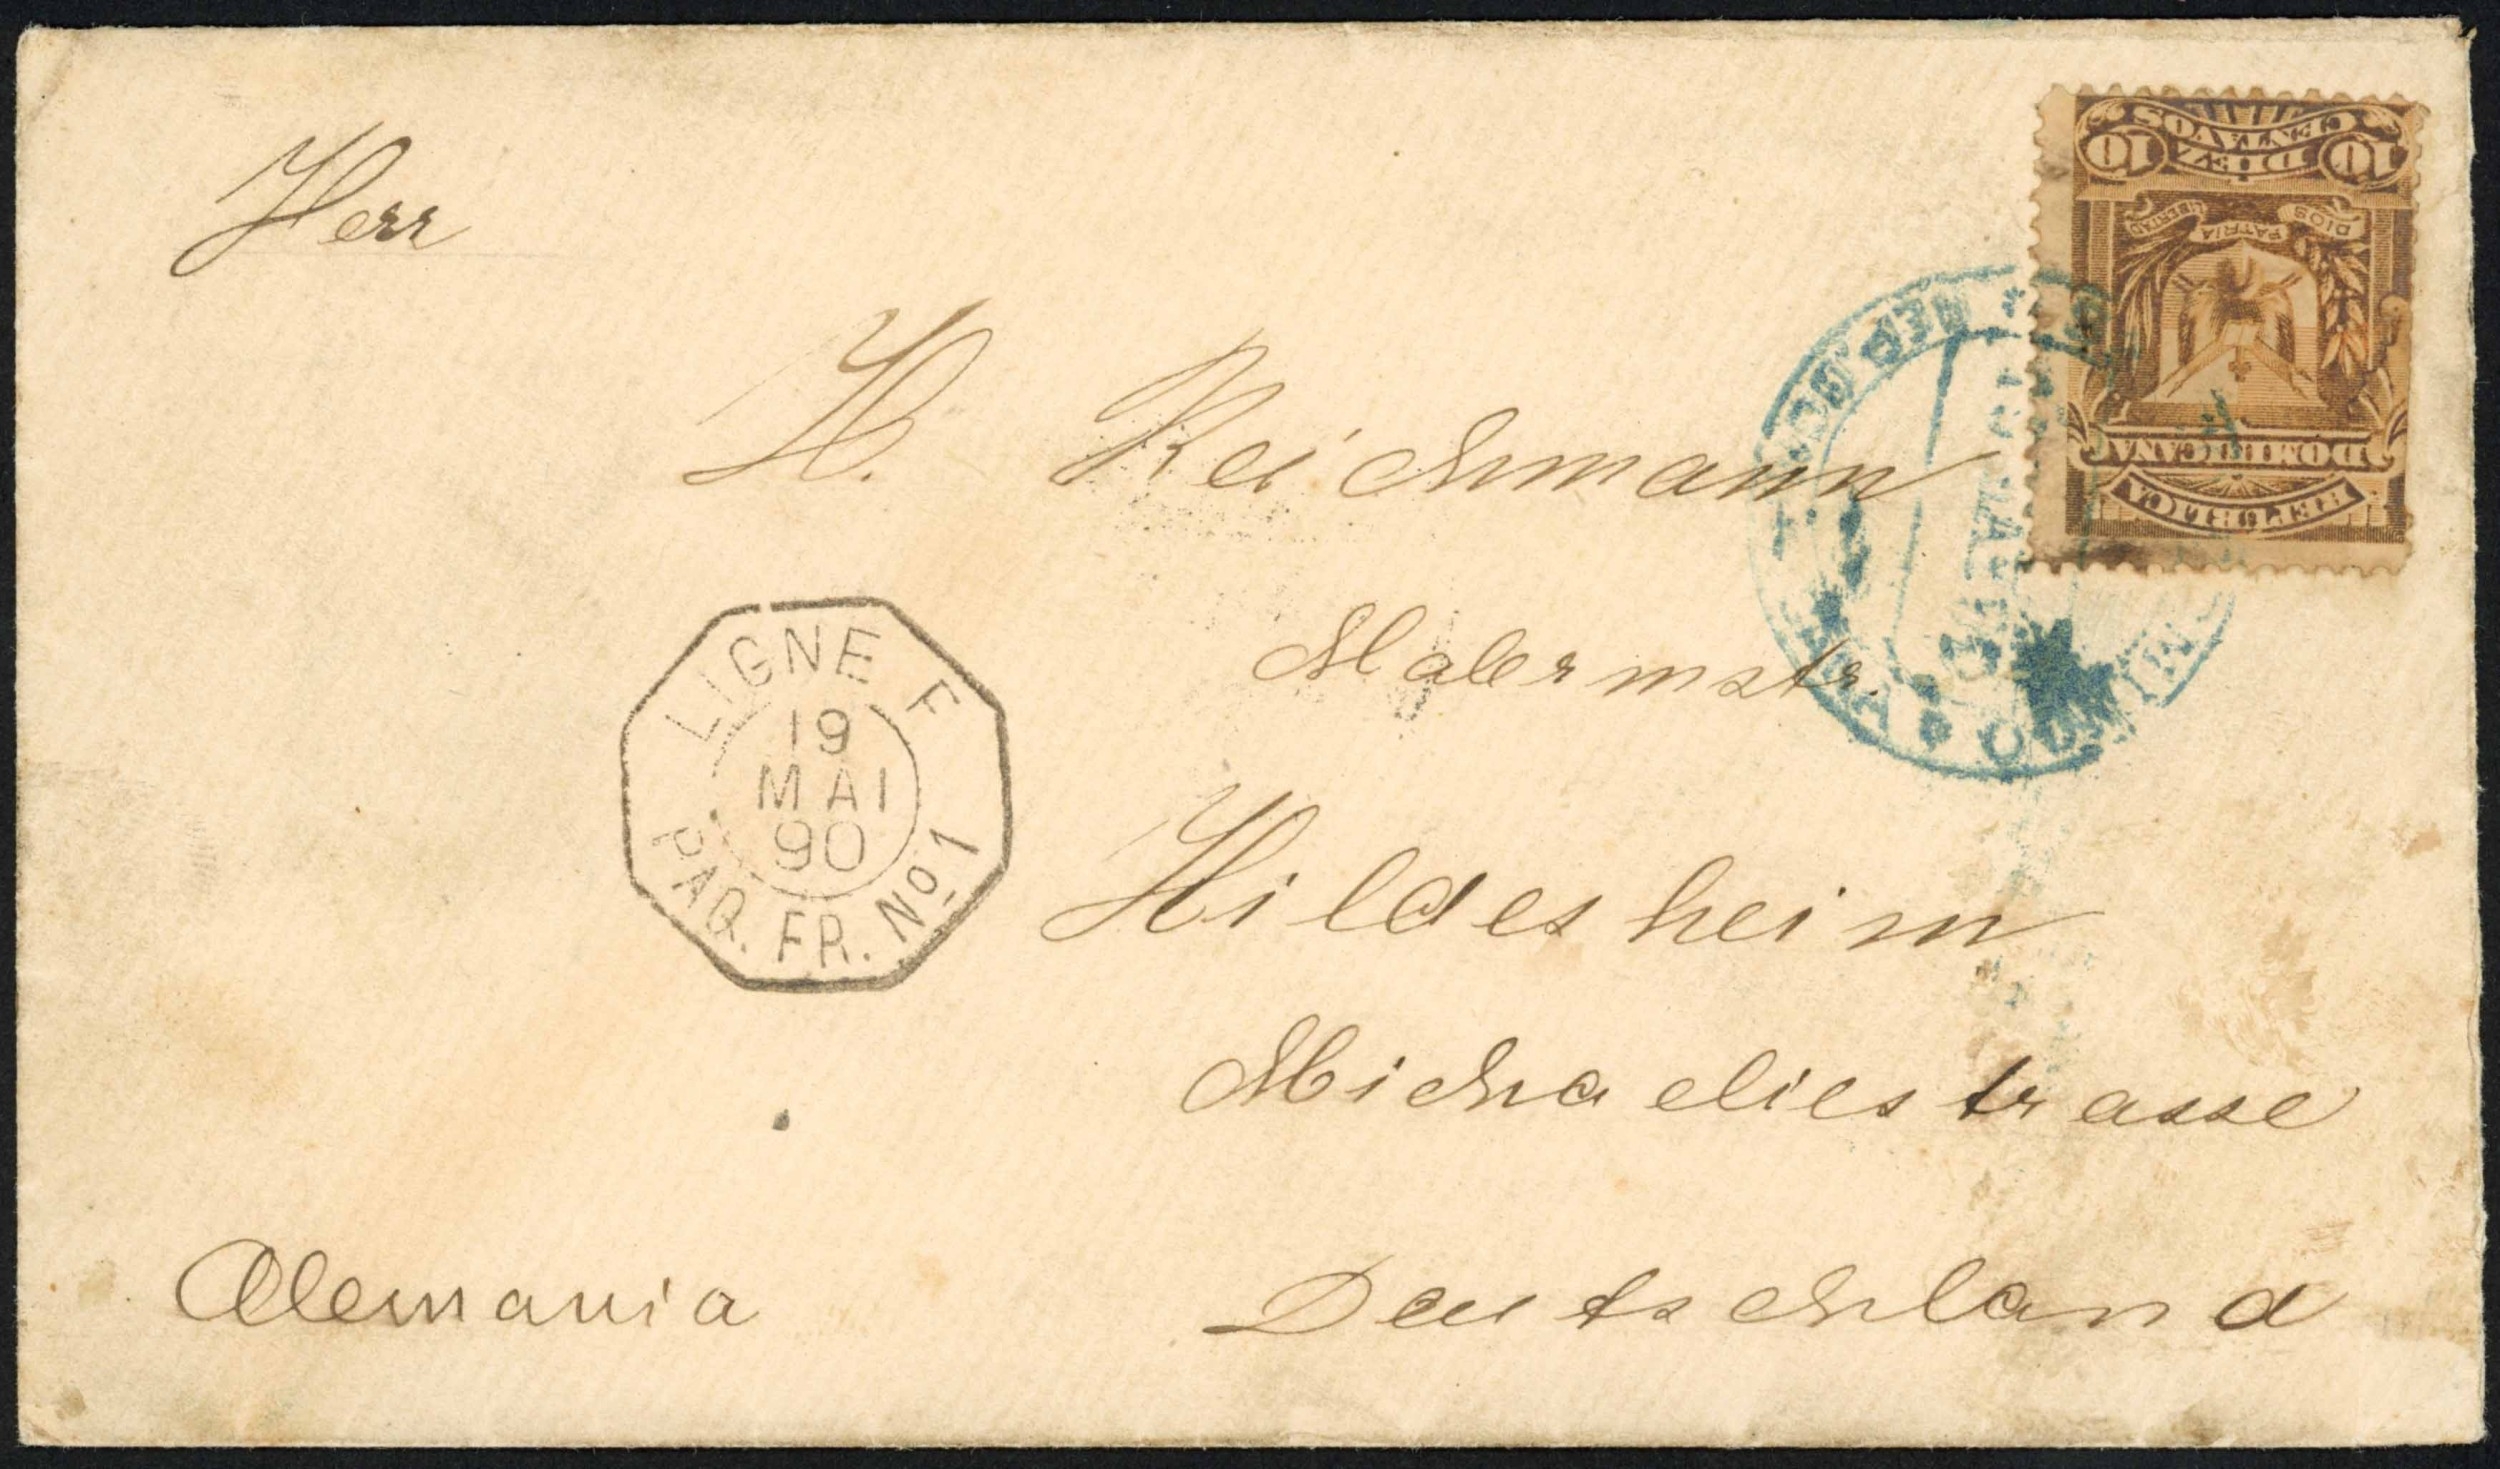 Herr
H. Reichmann
Malermstr.
Hildesheim
Michaeliestrasse
Deutschland
Alemania
LIGNE F
19
MAI
90
PAQ. FR. No 1
REPUBLICA
DOMINICANA
DIOS PATRIA LIBERTAD
10 DIEZ 10
CENTAVOS